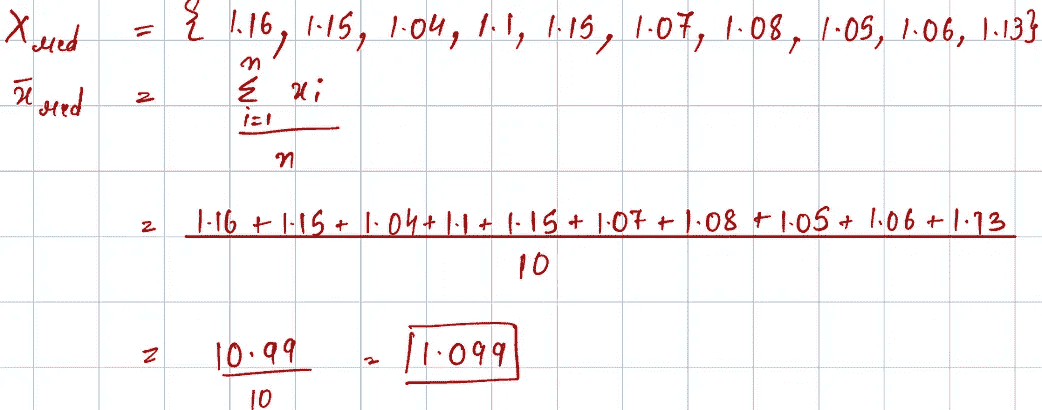 X med = { 1.16, 1.15, 1.04, 1.1, 1.15, 1.07, 1.08, 1.05, 1.06, 1.13}
x̄ med = n Σ i=1 xi / n
= 1.16 + 1.15 + 1.04 + 1.1 + 1.15 + 1.07 + 1.08 + 1.05 + 1.06 + 1.13 / 10
= 10.99 / 10 = 1.099